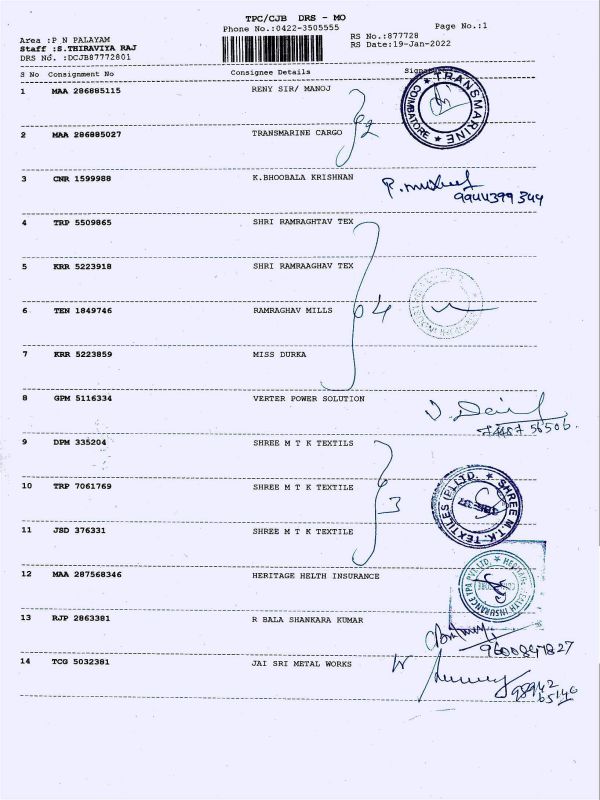 TPC/CJB DRS - MO
Phone No.:0422-3505555
Page No.:1
Area :P N PALAYAM
RS No.:877728
Staff :S.THIRAVIYA RAJ
RS Date:19-Jan-2022
DRS No. :DCJB87772801
S No Consignment No Consignee Details
1 MAA 286885115 RENY SIR/ MANOJ
TRANSMARINE COIMBATORE
2 MAA 286885027 TRANSMARINE CARGO
2
3 CNR 1599988 K.BHOOBALA KRISHNAN
9944399344
4 TRP 5509865 SHRI RAMRAGHTAV TEX
5 KRR 5223918 SHRI RAMRAAGHAV TEX
6 TEN 1849746 RAMRAGHAV MILLS
4
7 KRR 5223859 MISS DURKA
8 GPM 5116334 VERTER POWER SOLUTION
9 DPM 335204 SHREE M T K TEXTILS
10 TRP 7061769 SHREE M T K TEXTILE
3
SHREE M.T.K. TEXTILES (P) LTD.
11 JSD 376331 SHREE M T K TEXTILE
12 MAA 287568346 HERITAGE HELTH INSURANCE
HERITAGE HEALTH INSURANCE TPA PVT. LTD.
13 RJP 2863381 R BALA SHANKARA KUMAR
14 TCG 5032381 JAI SRI METAL WORKS
98942
65140